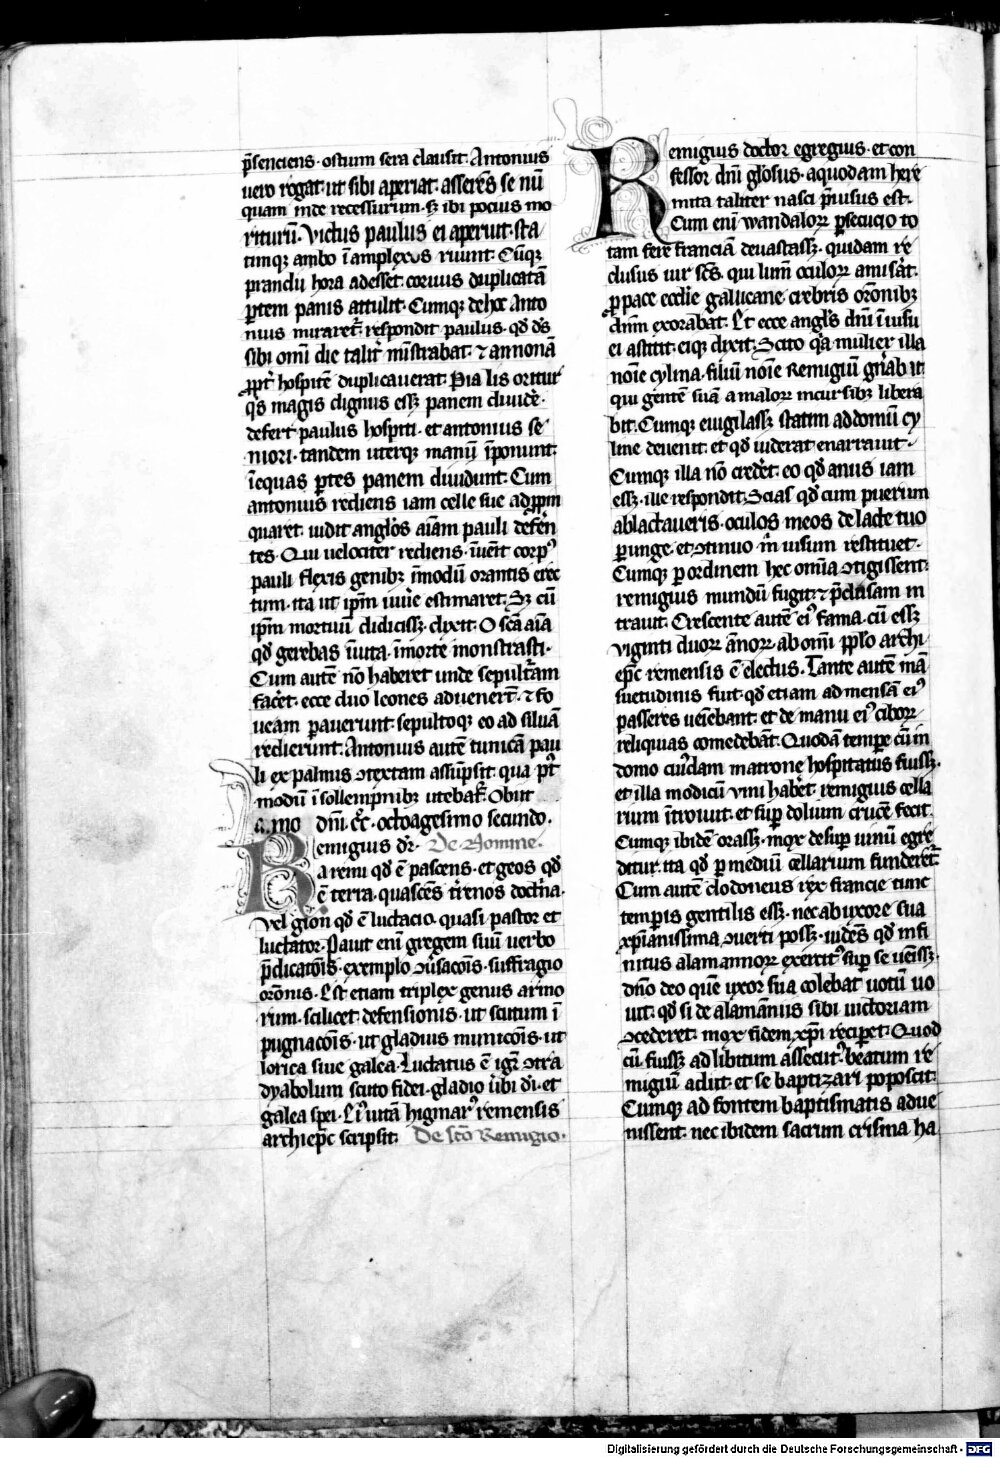 p̄senciens · ostium sera clausit. Antonius
uero rogat. ut sibi aperiat. asserēs se nū
quam inde recessurum · sꝫ ibi pocius mo
riturū. Victus paulus ei aperuit. sta
timqꝫ ambo ī amplexus ruunt. Cūqꝫ
prandij hora adesset. coruus duplicatā
ꝑtem panis attulit. Cumqꝫ de hoc Anto
nius miraret᷑. respondit paulus. qd̄ dn̄s
sibi omī die talit̄ mīstrabat. ⁊ annonā
ꝓpt̄ hospitē duplicauerat. Pia lis oritur
q̄s magis dignus essꝫ panem diuidē.
defert paulus hospiti. et antonius se
niori. tandem uterqꝫ manū īponunt.
ī equas ꝑtes panem diuidunt. Cum
antonius rediens iam celle sue adꝓpīn
quaret. uidit anglōs aīam pauli deferē
tes. Qui uelociter rediens. īuēit corpꝰ
pauli flexis genibꝫ ī modū orantis erec
tum. ita ut ip̄m uiuē estimaret. Sꝫ cū
ip̄m mortuū didicissꝫ. dixit. O scā aīa
qd̄ gerebas ī uita. ī morte monstrasti.
Cum autē nō haberet unde sepult̄am
fac̄et. ecce duo leones aduenert̄. ⁊ fo
ueam parauerunt. sepultoqꝫ eo ad siluā
redierunt. Antonius autē tunicā pau
li ex palmis ꝯtextam assūpsit. qua pt̄
modū ī sollempnibꝫ utebat᷑. Obiit
a.mo dn̄i. cc̄. octoagesimo secundo.
Remigius dr̄. De Nomine.
a remi qd̄ ē pascens. et geos qd̄
ē terra. quascēs t̄renos doct̄na.
Vel gion qd̄ ē luctacio. quasi pastor et
luctator. Pauit enī gregem suū uerbo
p̄dicatōis. exemplo ꝯūsacōis. suffragio
orōnis. Est etiam triplex genus armo
rum. scilicet defensionis. ut scutum ī
pugnacōis. ut gladius municōis. ut
lorica siue galea. Luctatus ē igr̄ ꝯtra
dyabolum scuto fidei. gladio ūbi dī. et
galea spei. Eiꝰ uitā higmarꝰ remensis
archiep̄c scripsit. De scō Remigio.
Remigius doctor egregius. et con
fessor dn̄i glōsus. a quodam here
mita taliter nasci p̄uisus est.
Cum enī wandaloꝝ ꝑsecucio to
tam fere franciā deuastassꝫ. quidam re
clusus uir scs̄. qui lum̄ oculoꝝ amisāt.
ꝓ pace ecclie gallicane crebris orōnibꝫ
dn̄m exorabat. Et ecce angls̄ dn̄i ī uisu
ei astitit. eiqꝫ dixit. Scito qā mulier illa
noīe cylina. filiū noīe Remigiū gn̄abit.
qui gentē suā a maloꝝ incursibꝫ libera
bit. Cumqꝫ euigilassꝫ statim ad domū cy
line deuenit. et qd̄ uiderat enarrauit.
Cumqꝫ illa nō credēt. eo qd̄ anus iam
essꝫ. ille respondit. Scias qd̄ cum puerum
ablactaueris. oculos meos de lacte tuo
ꝑunge. et ꝯtinuo m̄ uisum restituet.
Cumqꝫ ꝑ ordinem hec omīa ꝯtigissent.
remigius mundū fugit. ⁊ p̄clusam in
trauit. Crescente autē eiꝰ fama. cū essꝫ
viginti duoꝝ annoꝝ. ab omī ꝓplo archi
ep̄c remensis ē electus. Tante autē mā
suetudinis fuit. qd̄ etiam ad mensā eiꝰ
passeres ueīebant. et de manu eiꝰ ciboꝝ
reliquias comedebāt. Quodā tempe cū in
domo cuiꝰdam matrone hospitatus fuissꝫ.
et illa modicū vini habēt. remigius cella
rium ītrouit. et suꝑ dolium crucē fecit.
Cumqꝫ ibidē orassꝫ. mox desuꝑ uinū egre
ditur. ita qd̄ ꝑ mediū cellarium funderet᷑.
Cum autē clodoneus rex francie tunc
temꝑis gentilis essꝫ. nec ab uxore sua
xp̄ianissima ꝯuerti possꝫ. uidēs qd̄ infi
nitus alamannoꝝ exercitꝰ suꝑ se ueīssꝫ.
dn̄o deo quē uxor sua colebat uotū uo
uit. qd̄ si de alamānis sibi uictoriam
ꝯcederet. mox fidem xp̄i reciꝑet. Quod
cū fuissꝫ ad libitum assecutꝰ. beatum re
migiū adiit. et se baptizari poposcit.
Cumqꝫ ad fontem baptismatis adue
nissent. nec ibidem sacrum crisma ha
Digitalisierung gefördert durch die Deutsche Forschungsgemeinschaft · DFG